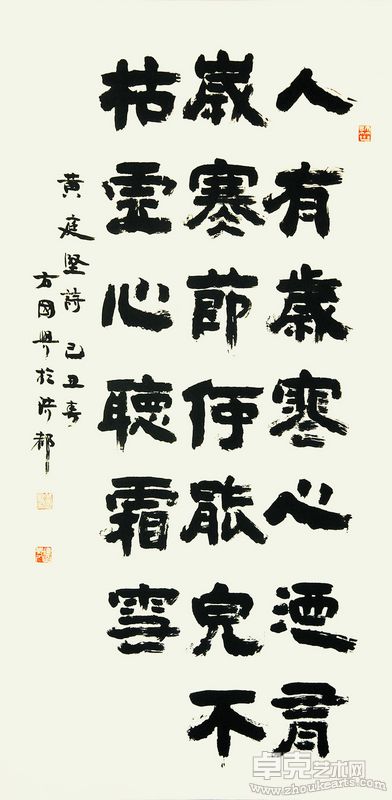 人有歲寒心迺有
歲寒節何能皃不
枯虛心聽霜雪
黄庭堅詩 己丑春
方國興於洪都
卓克艺术网
www.zhoukearts.com